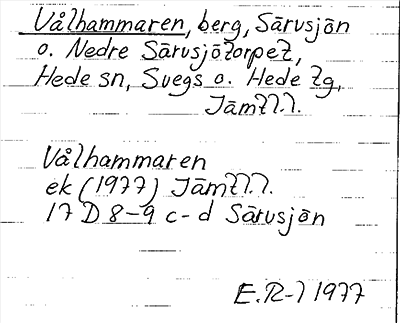 Vålhammaren, berg, Särvsjön
o. Nedre Särvsjötorpet,
Hede sn, Svegs o. Hede tg,
Jämtl.l.
Vålhammaren
ek (1977) Jämtl.l.
17 D 8-9 c-d Särvsjön
E.R-l 1977